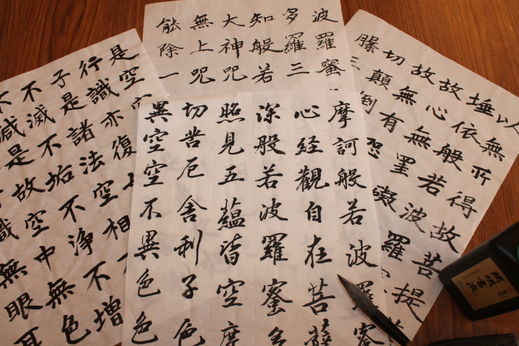 波羅蜜
多羅三
知般若
大神咒
無上咒
能除一
摩訶般若波羅蜜
心經觀自在菩薩
深般若波羅蜜多
照見五蘊皆空
切苦厄舍利子色
異空空不異色色
以
無所得故菩提
埵依般若波羅
故心無罣礙
故無有恐
切顛倒
三
是空
行識亦復
子是諸法空相
不滅不垢不淨不增
不減是故空中無色
識無眼耳